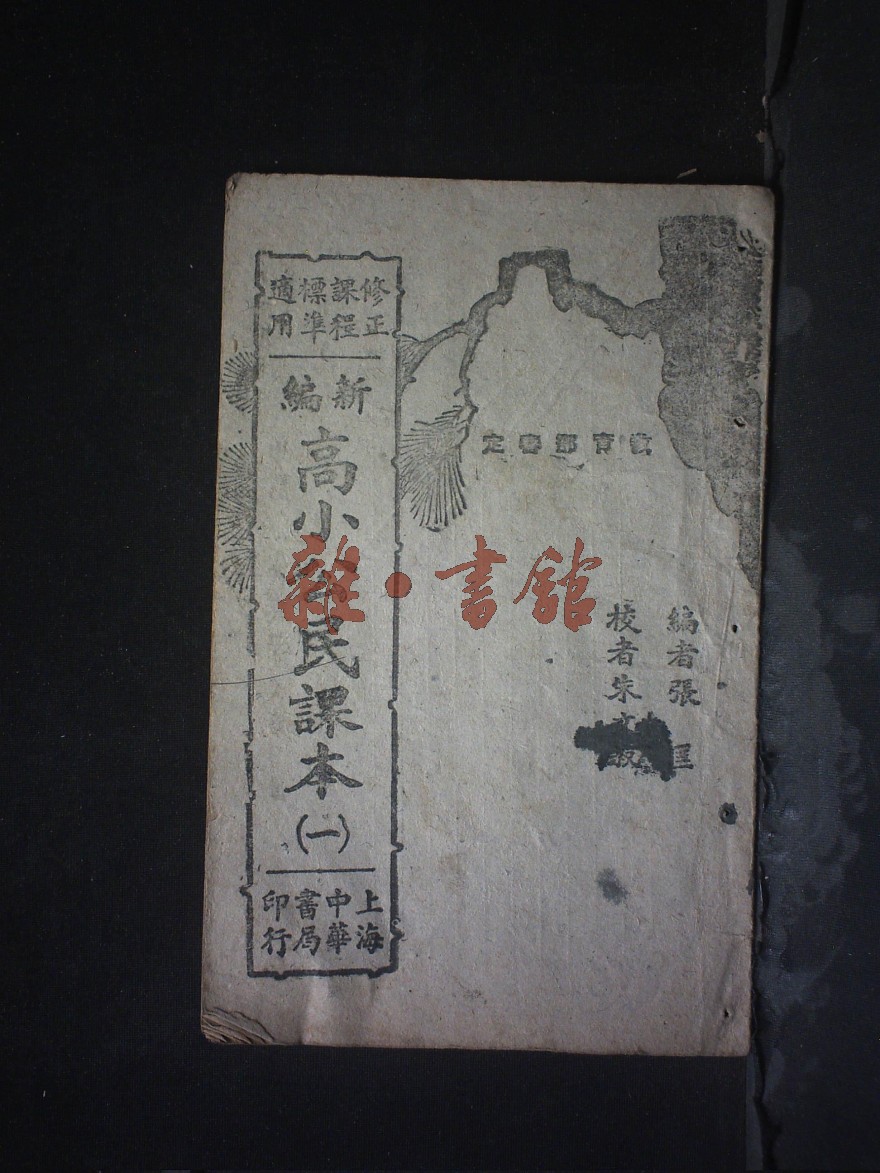 教育部審定
編者張匡
校者朱文叔
修正課程標準適用
新編
高小公民課本(一)
上海中華書局印行
雜·書館